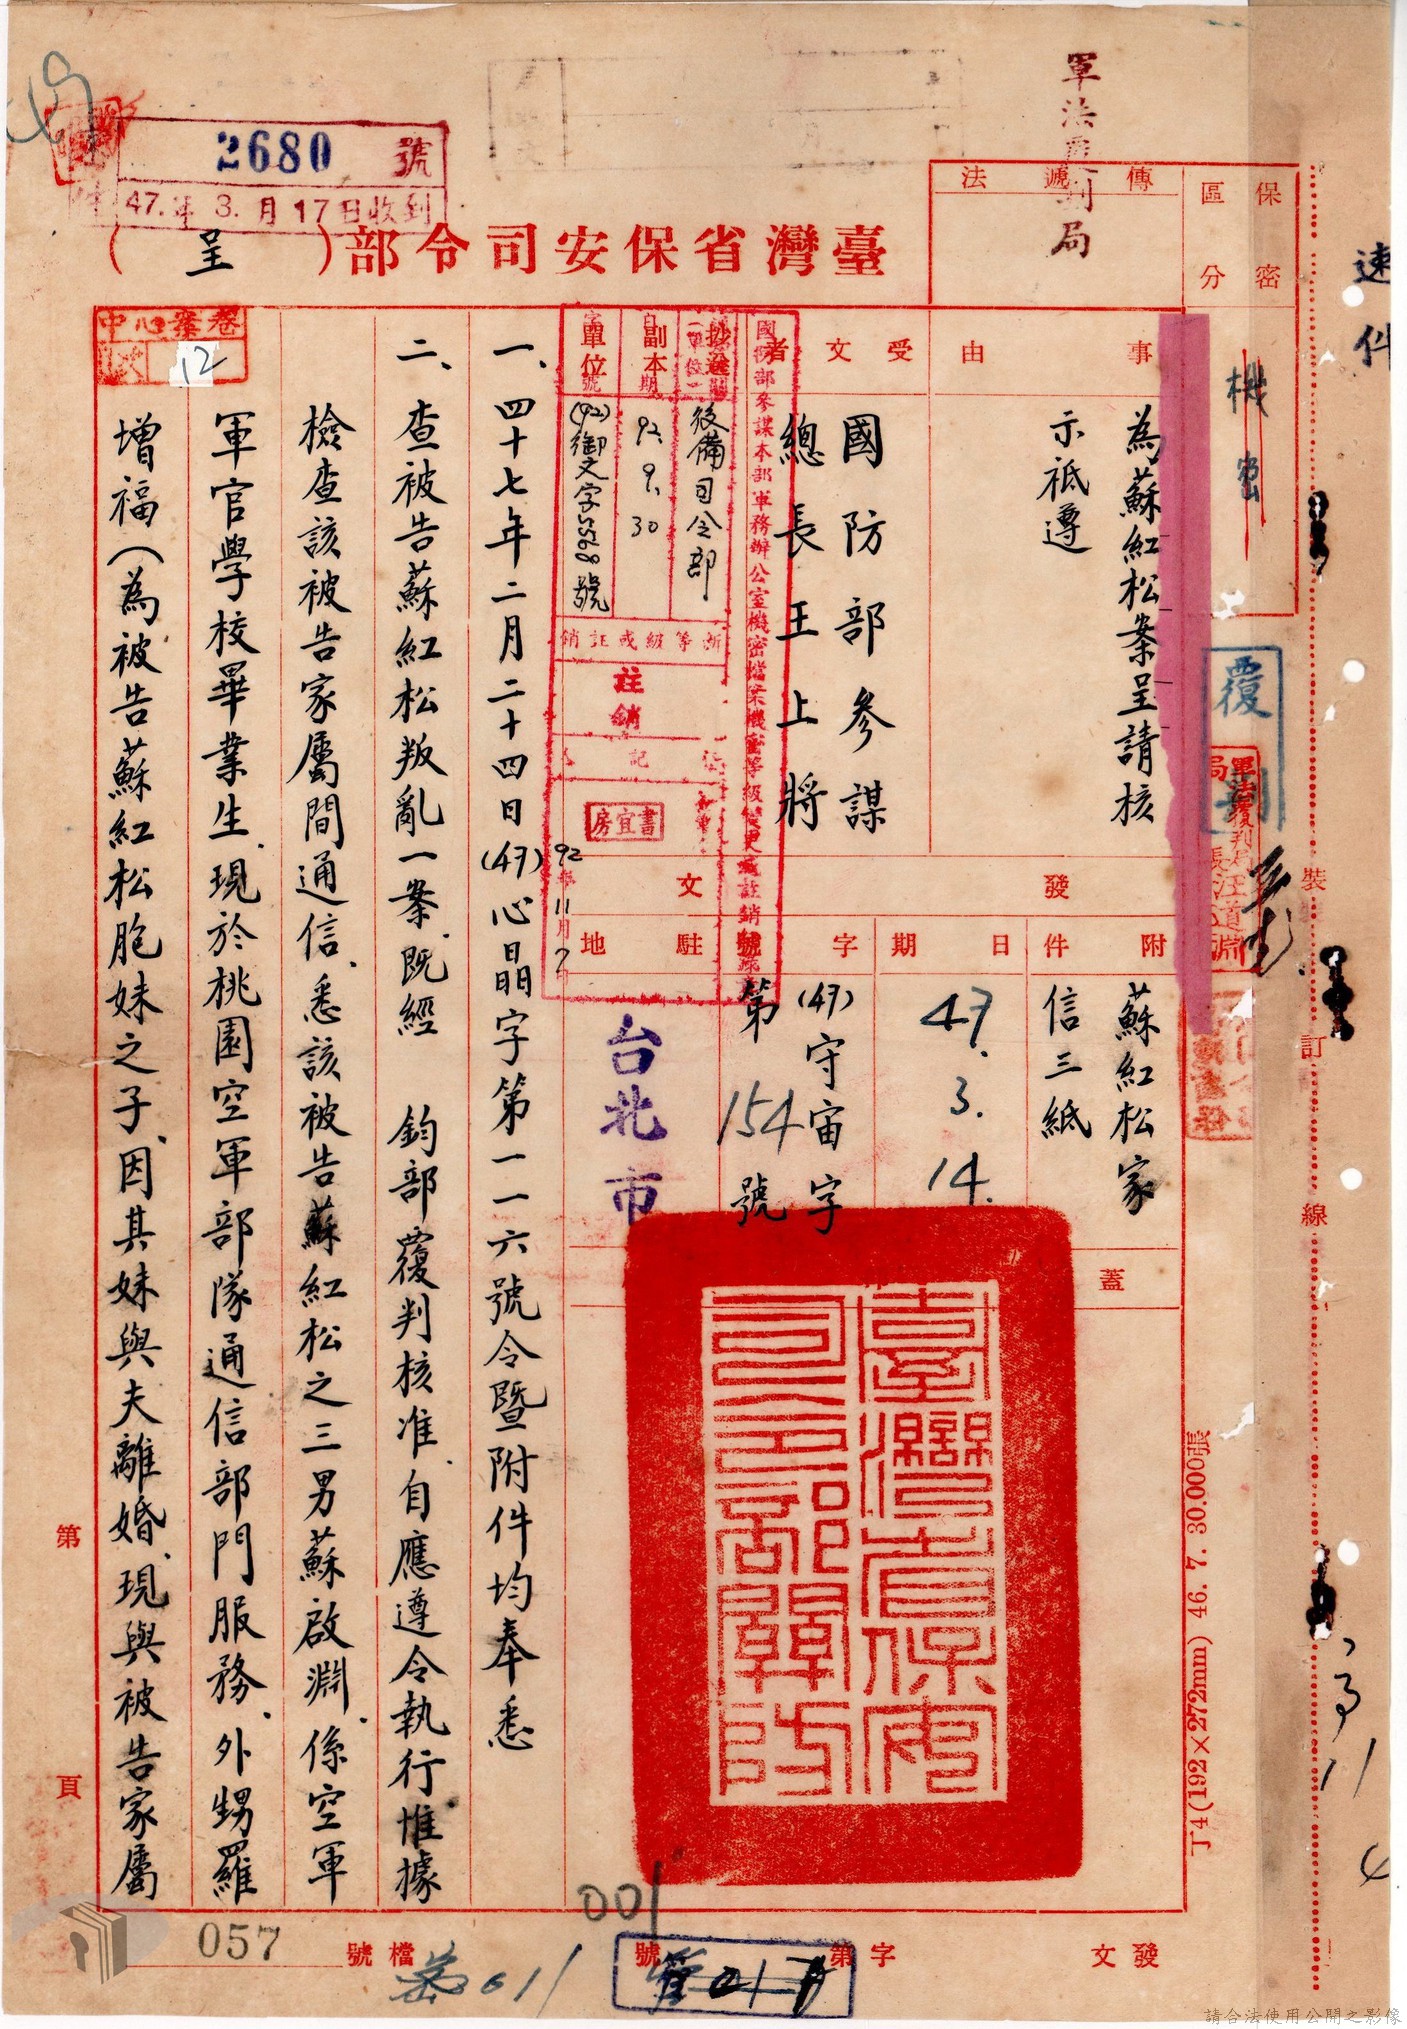 軍法覆判局
速件
2680 號
47.年 3.月 17日收到
臺灣省保安司令部
(呈)
保密
區分
機密
傳遞法
事由
為蘇紅松案呈請核
示祗遵
受文者
國防部參謀
總長王上將
附件
蘇紅松家
信三紙
發文
日期
47.3.14.
字號
(47)守宙字
第154號
駐地
台北市
蓋
覆判
國防部參謀本部軍務辦公室機密檔案機密等級變更或註銷
抄送
後備司令部
副本
日期
92.9.30
單位
字號
(92)御文字5598號
註銷
書宜房
92年11月7日
臺灣省保安
司令部關防
一、四十七年二月二十四日(47)心晶字第一一六號令暨附件均奉悉
二、查被告蘇紅松叛亂一案既經 鈞部覆判核准、自應遵令執行惟據
檢查該被告家屬間通信、悉該被告蘇紅松之三男蘇啟淵、係空軍
軍官學校畢業生、現於桃園空軍部隊通信部門服務、外甥羅
增福(為被告蘇紅松胞妹之子、因其妹與夫離婚、現與被告家屬
卷案心中
12
裝
訂
線
丁4(192×272mm) 46. 7. 30.000張
第
頁
發文
字第
號
檔號
001
057
請合法使用公開之影像